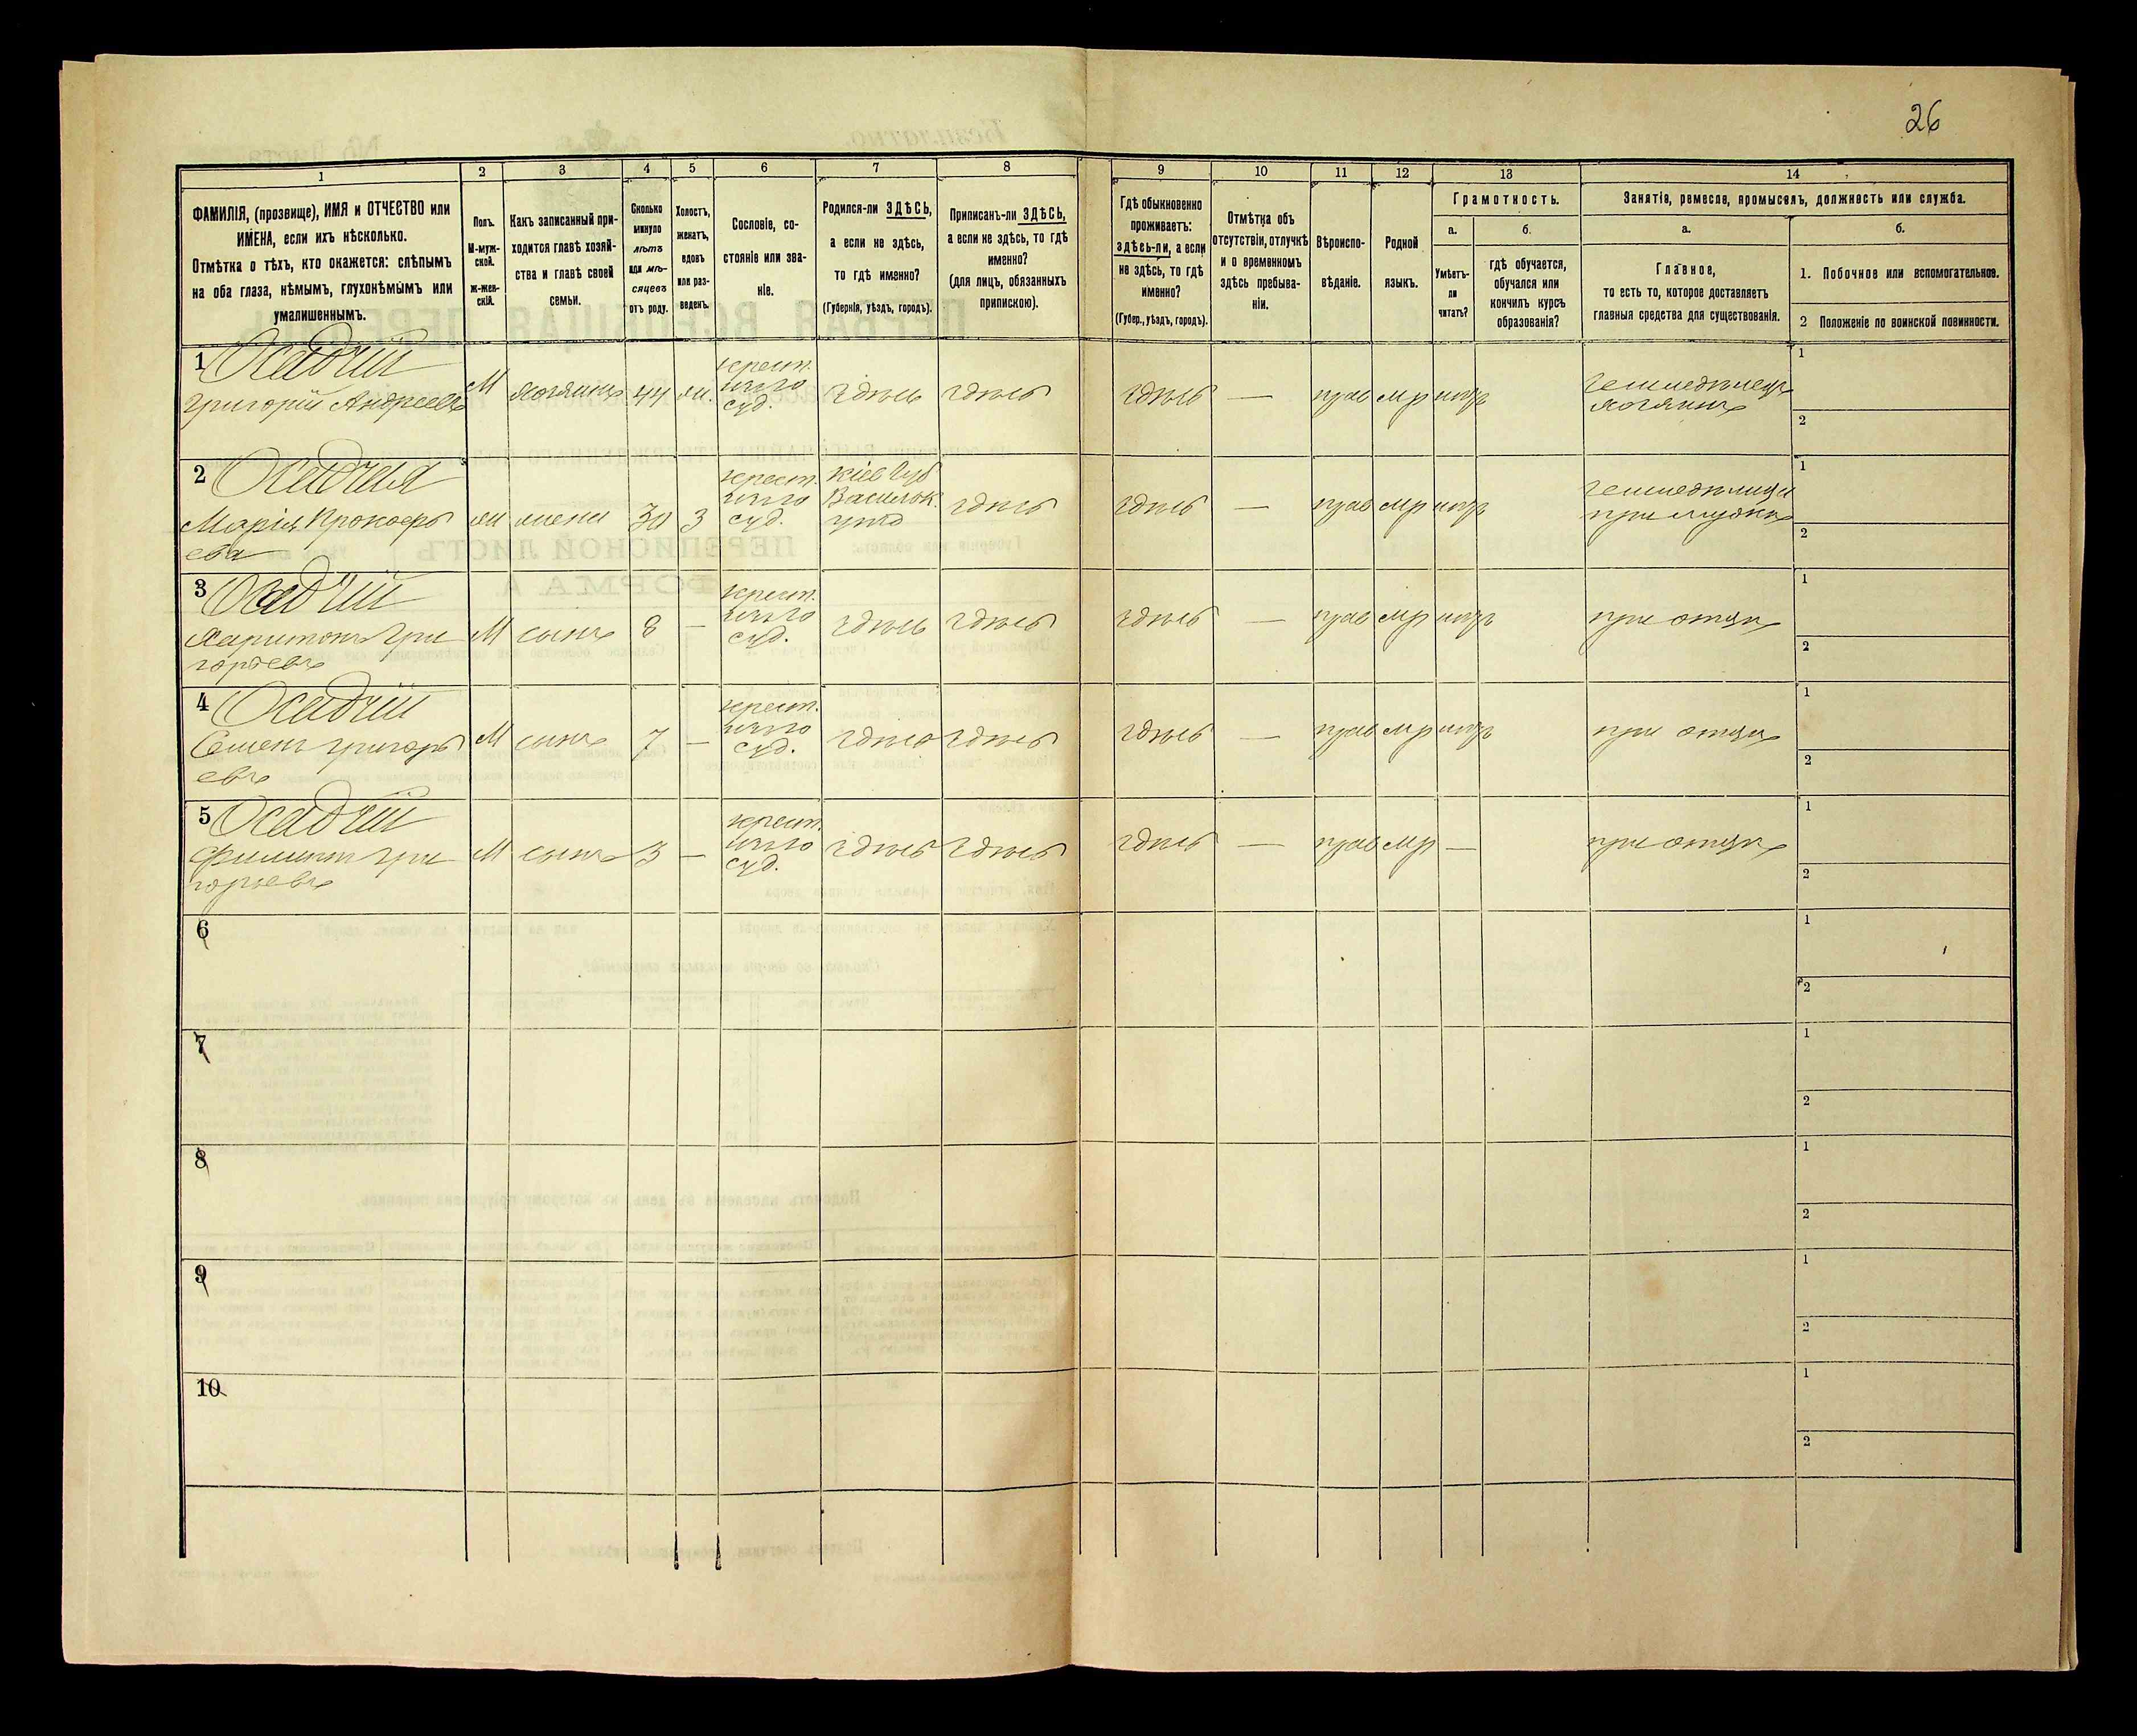 26
1
2
3
4
5
6
7
8
9
10
11
12
13
14
ФАМИЛІЯ, (прозвище), ИМЯ и ОТЧЕСТВО или
ИМЕНА, если ихъ нѣсколько.
Отмѣтка о тѣхъ, кто окажется: слѣпымъ
на оба глаза, нѣмымъ, глухонѣмымъ или
умалишеннымъ.
Полъ.
М-муж-
ской.
ж-жен-
скій.
Какъ записанный при-
ходится главѣ хозяй-
ства и главѣ своей
семьи.
Сколько
минуло
лѣтъ
или мѣ-
сяцевъ
отъ роду.
Холостъ,
женатъ,
вдовъ
или раз-
веденъ.
Сословіе, со-
стояніе или зва-
ніе.
Родился-ли ЗДѢСЬ,
а если не здѣсь,
то гдѣ именно?
(Губернія, уѣздъ, городъ).
Приписанъ-ли ЗДѢСЬ,
а если не здѣсь, то гдѣ
именно?
(для лицъ, обязанныхъ
припискою).
Гдѣ обыкновенно
проживаетъ:
здѣсь-ли, а если
не здѣсь, то гдѣ
именно?
(Губер., уѣздъ, городъ).
Отмѣтка объ
отсутствіи, отлучкѣ
и о временномъ
здѣсь пребыва-
ніи.
Вѣроиспо-
вѣданіе.
Родной
языкъ.
Грамотность.
а.
Умѣетъ-
ли
читать?
б.
гдѣ обучается,
обучался или
кончилъ курсъ
образованія?
Занятіе, ремесло, промыселъ, должность или служба.
а.
Главное,
то есть то, которое доставляетъ
главныя средства для существованія.
б.
1. Побочное или вспомогательное.
2 Положеніе по воинской повинности.
1 Осадчій
Григорій Андреевъ
М
хозяинъ
44
ж.
крест.
суд.
здѣсь
здѣсь
здѣсь
—
прав
мр
нѣтъ
земледѣлецъ
хозяинъ
1
2
2 Осадчая
Марія Прокофь
ева
ж
жена
30
З
крест.
суд.
Кіев Губ
Васильк.
уѣзд
здѣсь
здѣсь
—
прав
мр
нѣтъ
при мужѣ
1
2
3 Осадчій
Харитонъ Гри
горьевъ
М
сынъ
8
—
крест.
суд.
здѣсь
здѣсь
здѣсь
—
прав
мр
нѣтъ
при отцѣ
1
2
4 Осадчій
Семенъ Григорь
евъ
М
сынъ
7
—
крест.
суд.
здѣсь
здѣсь
здѣсь
—
прав
мр
нѣтъ
при отцѣ
1
2
5 Осадчій
Филиппъ Гри
горьевъ
М
сынъ
3
—
крест.
суд.
здѣсь
здѣсь
здѣсь
—
прав
мр
—
при отцѣ
1
2
6
1
2
7
1
2
8
1
2
9
1
2
10
1
2